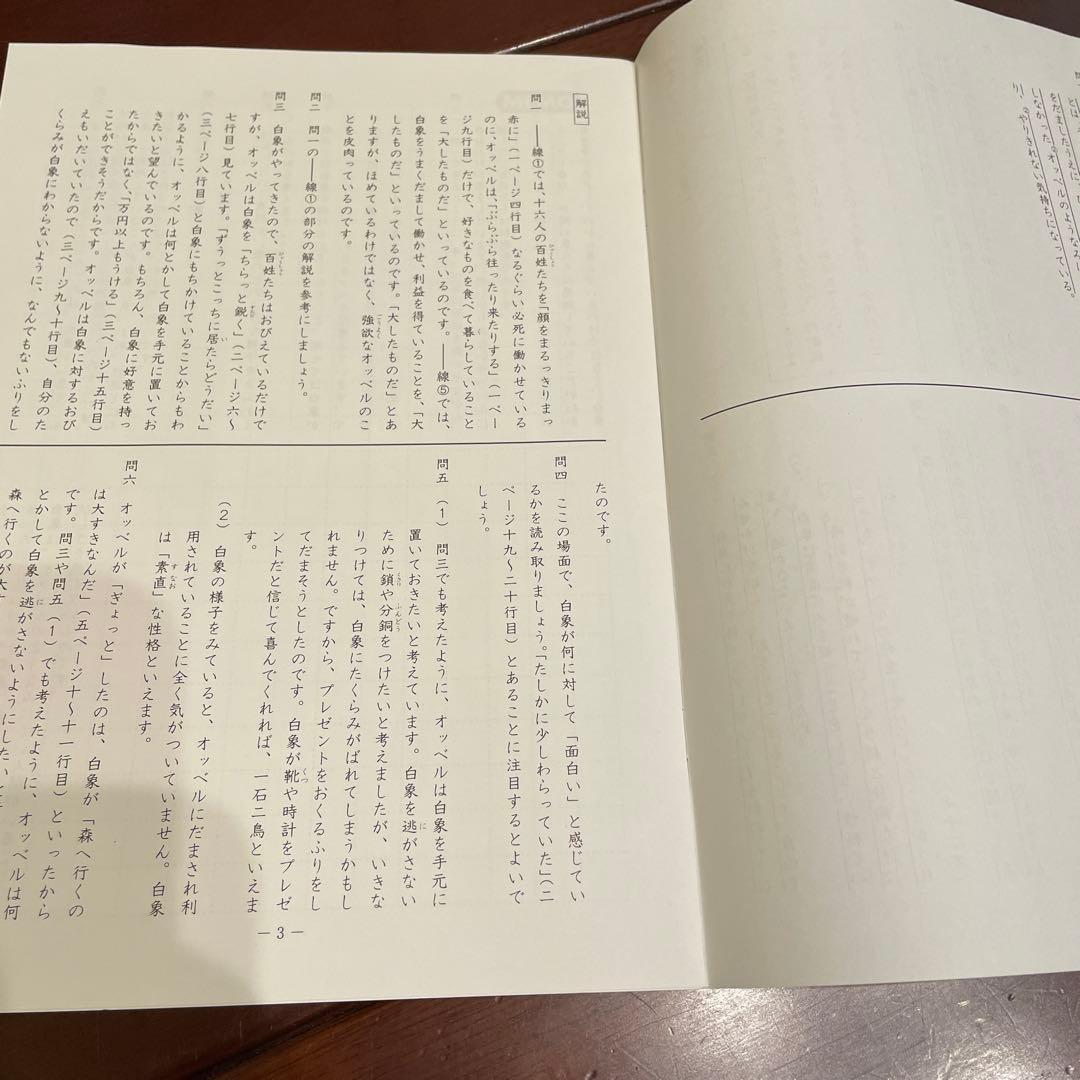 とは、
をだましたうえに
しなかったオッベルのような
り、やりきれない気持ちになっている。
解説
問一 ――線①では、十六人の百姓たちを「顔をまるっきりまっ
赤に」(一ページ四行目)なるぐらい必死に働かせている
のに、オッベルは、「ぶらぶら往ったり来たりする」(一ペー
ジ九行目)だけで、好きなものを食べて暮らしていること
を「大したものだ」といっているのです。――線⑤では、
白象をうまくだまして働かせ、利益を得ていることを、「大
したものだ」といっているのです。「大したものだ」とあ
りますが、ほめているわけではなく、強欲なオッベルのこ
とを皮肉っているのです。
問二 問一の――線①の部分の解説を参考にしましょう。
問三 白象がやってきたので、百姓たちはおびえているだけで
すが、オッベルは白象を「ちらっと鋭く」(二ページ六〜
七行目)見ています。「ずうっとこっちに居たらどうだい」
(三ページ八行目)と白象にもちかけていることからもわ
かるように、オッベルは何とかして白象を手元に置いてお
きたいと望んでいるのです。もちろん、白象に好意を持っ
たからではなく、「万円以上もうける」(三ページ十五行目)
ことができそうだからです。オッベルは白象に対するおび
えもいだいていたので(三ページ九〜十行目)、自分のた
くらみが白象にわからないように、なんでもないふりをし
たのです。
問四 ここの場面で、白象が何に対して「面白い」と感じてい
るかを読み取りましょう。「たしかに少しわらっていた」(二
ページ十九〜二十行目)とあることに注目するとよいで
しょう。
問五 (1) 問三でも考えたように、オッベルは白象を手元に
置いておきたいと考えています。白象を逃がさない
ために鎖や分銅をつけたいと考えましたが、いきな
りつけては、白象にたくらみがばれてしまうかもし
れません。ですから、プレゼントをおくるふりをし
てだまそうとしたのです。白象が靴や時計をプレゼ
ントだと信じて喜んでくれれば、一石二鳥といえま
す。
(2) 白象の様子をみていると、オッベルにだまされ利
用されていることに全く気がついていません。白象
は「素直」な性格といえます。
問六 オッベルが「ぎょっと」したのは、白象が「森へ行くの
は大すきなんだ」(五ページ十〜十一行目)といったから
です。問三や問五(1)でも考えたように、オッベルは何
とかして白象を逃がさないようにしたい
森へ行くのが大す
―3―